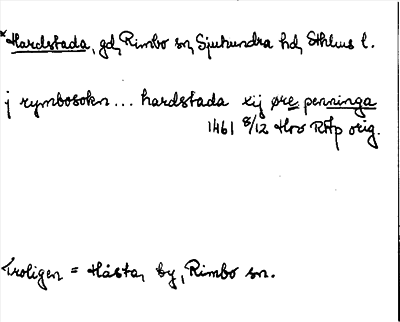 *Hardstada, gd, Rimbo sn, Sjuhundra hd, Sthlms l.
j rymbosokn... hardstada xij øre penninga
1461 8/12 Hvo RAp orig.
Troligen = Håsta, by, Rimbo sn.